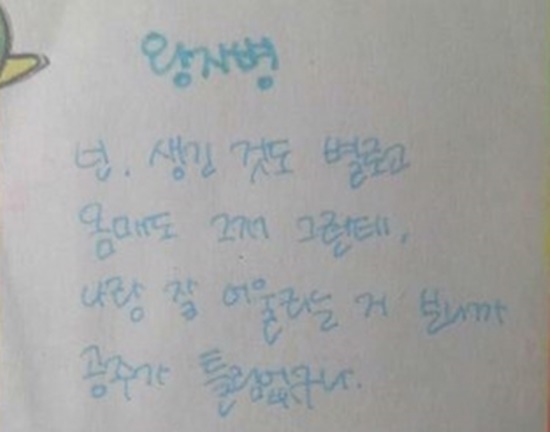 왕자병
넌. 생긴 것도 별로고
몸매도 그저 그런데,
나랑 잘 어울리는 거 보니까
공주가 틀림없구나.